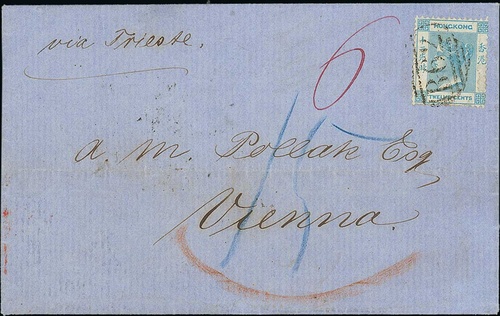 via Trieste.
6
HONGKONG
香港
B62
TWELVE CENTS
15
A. M. Pollak Esq
Vienna.